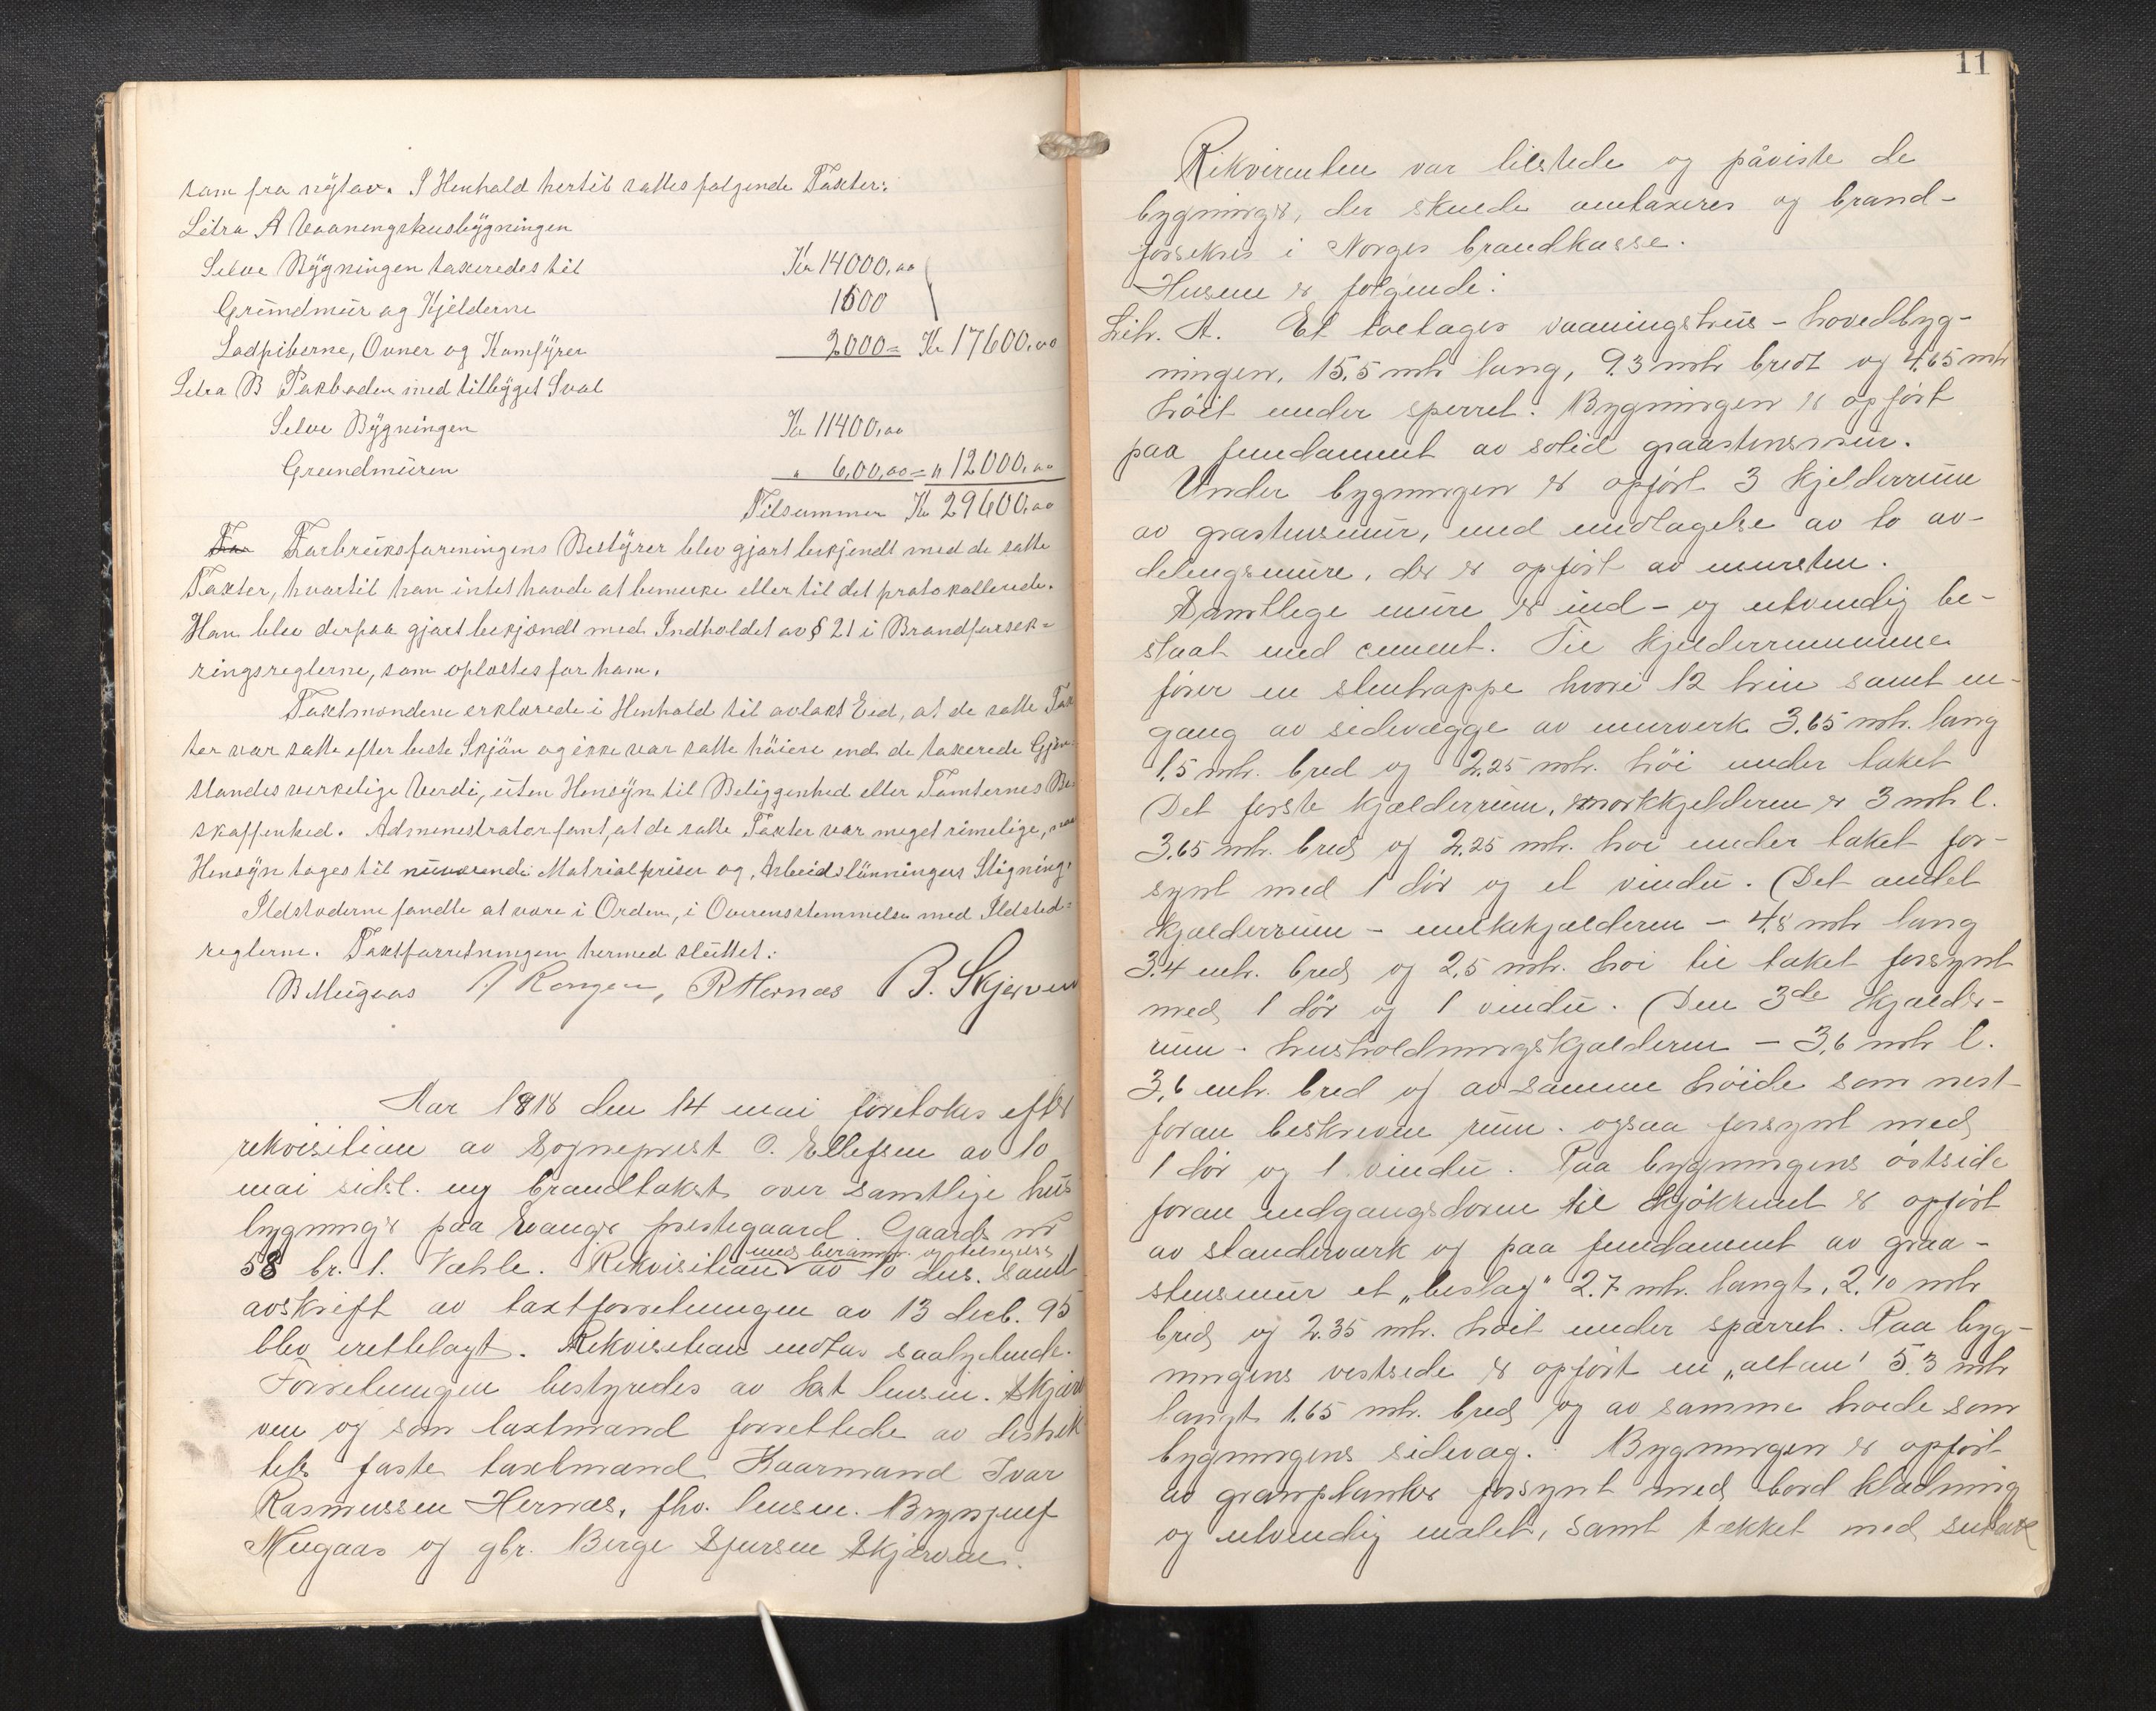 som fra nytav. I Henhold hertil sattes følgende Taxter:
Litra A Vaaningshusbygningen
Selve Bygningen taxeredes til Kr 14000,00
Grundmur og Kjelderne 1600
Ladpiberne, Ovner og Komfyrer 2000 = Kr 17600,00
Litra B Pakboden med tilbygget Sval
Selve Bygningen Kr 11400,00
Grundmuren " 600,00 = " 12000,00
Tilsammen Kr 29600,00
Forbruksforeningens Bestyrer blev gjort bekjendt med de satte
Taxter, hvortil han intet havde at bemerke eller til det protokollerede.
Han blev derpaa gjort bekjendt med Indholdet av § 21 i Brandforsek-
ringsreglerne, som oplæstes for ham.
Taxtmændene erklærede i Henhold til avlakt Eid, at de satte Tax
ter var satte efter beste Skjön og ikke var satte höiere end de taxerede Gjen-
standes verkelige Verdi, uten Hensyn til Beliggenhed eller Tomternes Be
skaffenhed. Admenestrator fant, at de satte Taxter var meget rimelige, naa
Hensyn tages til nuværende Matrialpriser og Arbeidslönningers Stigning.
Ildstæderne fandtes at være i Orden, i Overensstemmelse med Ildsted-
reglerne. Taxtforretningen hermed sluttet:
B Mugaas I Rongen, R Hernæs B. Skjerven
Aar 1918 den 14 mai foretokes efter
rekvisition av Sogneprest O. Ellefsen av 10
mai sidsl. ny brandtakst over samtlige hus
bygninger paa Vangs prestegaard Gaards nr
med beramm. og tilsigelse
58 br. 1. Væhle. Rekvisition av 10 ds. samt
avskrift av taxtforretningen av 13 decb. 95
blev irettelagt. Rekvisition indtas saalydende.
Forretningen bestyredes av lensm. Skjær
ven og som taxtmænd forrettede av distrik
tets faste taxtmænd Kaarmand Ivar
Rasmussen Hernæs, fhv. lensm. Brynjulf
Mugaas og gbr. Berge Sjursen Skjærven.
11
Rekvirenten var tilstede og påviste de
bygninger, der skulde omtaxeres og brand-
forsekres i Norges brandkasse.
Husene er følgende:
Litr. A. Et toetages vaaningshus - hovedbyg-
ningen, 15.5 mtr lang, 9.3 mtr bredt og 4.65 mtr
höit under sperret. Bygningen er opfört
paa fundament av solid graastensmur.
Under bygningen er opfört 3 kjelderrum
av grastensmur, med undtagelse av to av-
delingsmure, der er opfört av mursten.
Samtlege mure er ind- og utvendig be-
slaat med cement. Til kjelderrummene
förer en stentrappe hvori 12 trin samt en-
gang av sidevægge av murverk 3.65 mtr. lang
1.5 mtr. bred og 2.25 mtr. höi under taket
Det förste kjælderrum, mørkkjelderen er 3 mtr l.
3.65 mtr. bred og 2.25 mtr. höi under taket for-
synt med 1 dör og et vindu. Det andet
kjælderrum - melkekjælderen - 4.8 mtr lang
3.4 mtr. bred og 2.5 mtr. höi til taket forsynt
med 1 dör og 1 vindu. Den 3de kjælder-
rum - husholdningskjælderen - 3,6 mtr l.
3,6 mtr. bred og av samme höide som nest-
foran beskrevne rum. ogsaa forsynt med
1 dör og 1 vindu. Paa bygningens östside
foran indgangsdören til kjökkenet er opfört
av standerværk og paa fundament av graa-
stensmur et „beslag" 2.7 mtr. langt, 2,10 mtr
bred og 2.35 mtr. höit under sparret. Paa byg-
ningens vestside er opfört en „altan" 5.3 mtr
langt 1.65 mtr. bred og av samme höide som
bygningens sidevæg. Bygningen er opfört
av granplanker forsynt med bord klædning
og utvendig malet, samt tækket med sutak